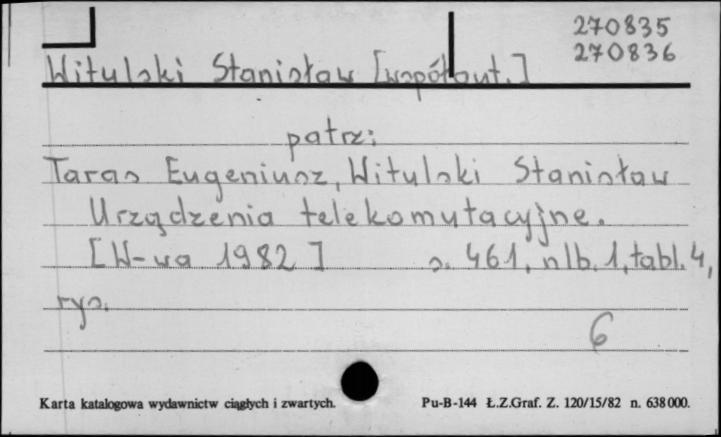 270835
270836
Witulski Stanisław [współaut.]
patrz:
Taras Eugeniusz, Witulski Stanisław
Urządzenia telekomutacyjne.
[W-wa 1982] s. 461, nlb. 1, tabl. 4,
rys.
6
Karta katalogowa wydawnictw ciągłych i zwartych. Pu-B-144 Ł.Z.Graf. Z. 120/15/82 n. 638000.